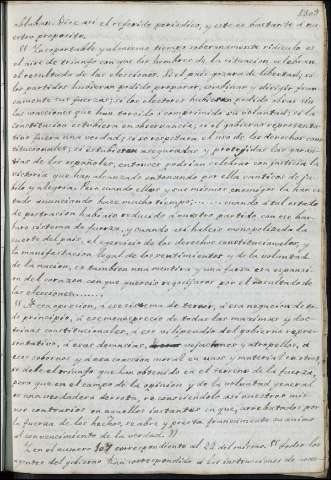 adoban. Dice así el referido periódico, y este es bastante á nu
estro propósito.
"Insoportable y al mismo tiempo soberanamente ridículo es
el aire de triunfo con que los hombres de la situación celebran
el resultado de las elecciones. Si el país gozara de libertad; si
los partidos hubieran podido preparar, combinar y dirigir fran
camente sus fuerzas; si los electores hubieran podido obrar sin
las coacciones que han torcido ó comprimido su voluntad; si la
constitución estubiera en observancia; si el gobierno representa
tivo fuera una verdad; si se respetara el uso de los derechos cons
titucionales; si estubieran aseguradas y protegidas las garan
tías de los españoles, entonces podrían celebrar con justicia la
victoria que han alcanzado entonando por ella cánticos de jú
bilo y alegría. Pero cuando ellos y sus mismos enemigos la han es
tado anunciando hace mucho tiempo; ...... cuando á tal estado
de postración habeis reducido á nuestro partido con ese bár
baro sistema de fuerza, y cuando así habeis monopolizado la
suerte del país, el ejercicio de los derechos constitucionales, y
la manifestación legal de los sentimientos y de la voluntad
de la nación, es tambien una mentira y una farsa esa espansi
ón del corazon con que quereis regocijaros por el resultado de
las elecciones.......
"A esa opresión, á ese sistema de terror, á esa negación de to
do principio, á ese menosprecio de todas las máximas y doc
trinas constitucionales, á ese vilipendio del gobierno repre
sentativo, á esas demasías, vejaciones y atropellos, á
esos sobornos y á esa coacción moral en unos y material en otros,
se debe el triunfo que han obtenido en el terreno de la fuerza,
pero que en el campo de la opinión y de la voluntad general
es una verdadera derrota, reconociéndolo así nuestros mis
mos contrarios en aquellos instantes en que, arrebatados por
la fuerza de los hechos, se abre y presta francamente su ánimo
al convencimiento de la verdad."
Y en el número 307 correspondiente al 22 del mismo. "Todos los
agentes del gobierno han correspondido á las instrucciones de